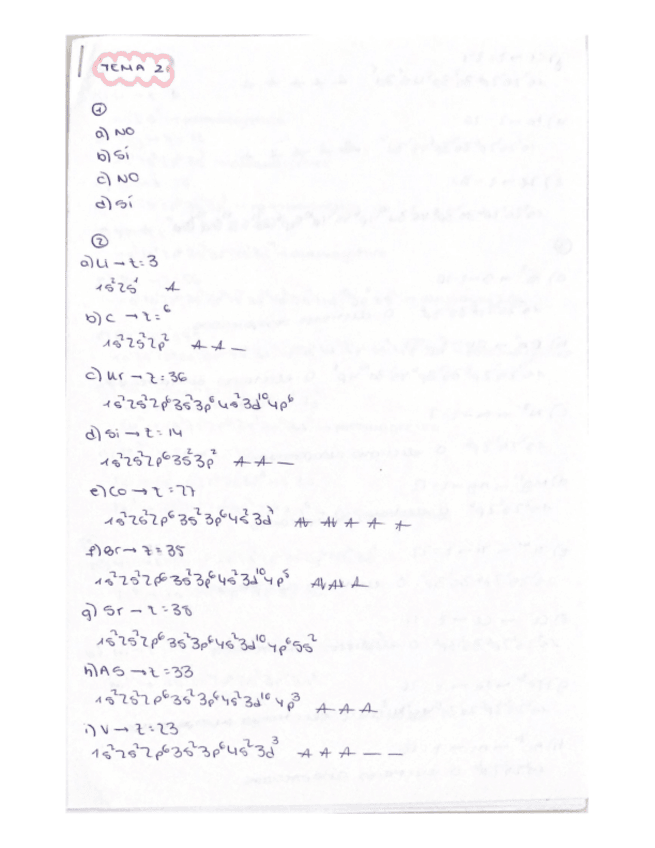 TEMA 2
①
a) NO
b) Sí
c) NO
d) Sí
②
a) Li → z=3
1s²2s¹
b) C → z=6
1s²2s²2p²
c) Kr → z=36
1s²2s²2p⁶3s²3p⁶4s²3d¹⁰4p⁶
d) Si → z=14
1s²2s²2p⁶3s²3p²
e) Co → z=27
1s²2s²2p⁶3s²3p⁶4s²3d⁷
f) Br → z=35
1s²2s²2p⁶3s²3p⁶4s²3d¹⁰4p⁵
g) Sr → z=38
1s²2s²2p⁶3s²3p⁶4s²3d¹⁰4p⁶5s²
h) AS → z=33
1s²2s²2p⁶3s²3p⁶4s²3d¹⁰4p³
i) V → z=23
1s²2s²2p⁶3s²3p⁶4s²3d³